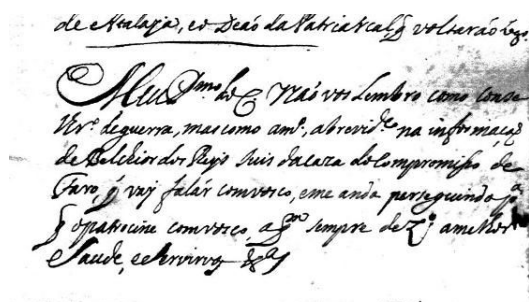 de Atalaya, eo Deaó da Patriarcal q̃ voltaraó logo.
Meu Am.º e S.r Naó vos lembro como conse
lhr.º de guerra, mas como am.º, a brevid.e na informaçaõ
de Belchior dos Reys Juis da caza do Compromisso de
Faro, q̃ vay falár comvosco, eme anda perseguindo p.ª
q̃ opatrocine comvosco, a q.m sempre dez.º amelhor
Saude, e servirvos &.ª